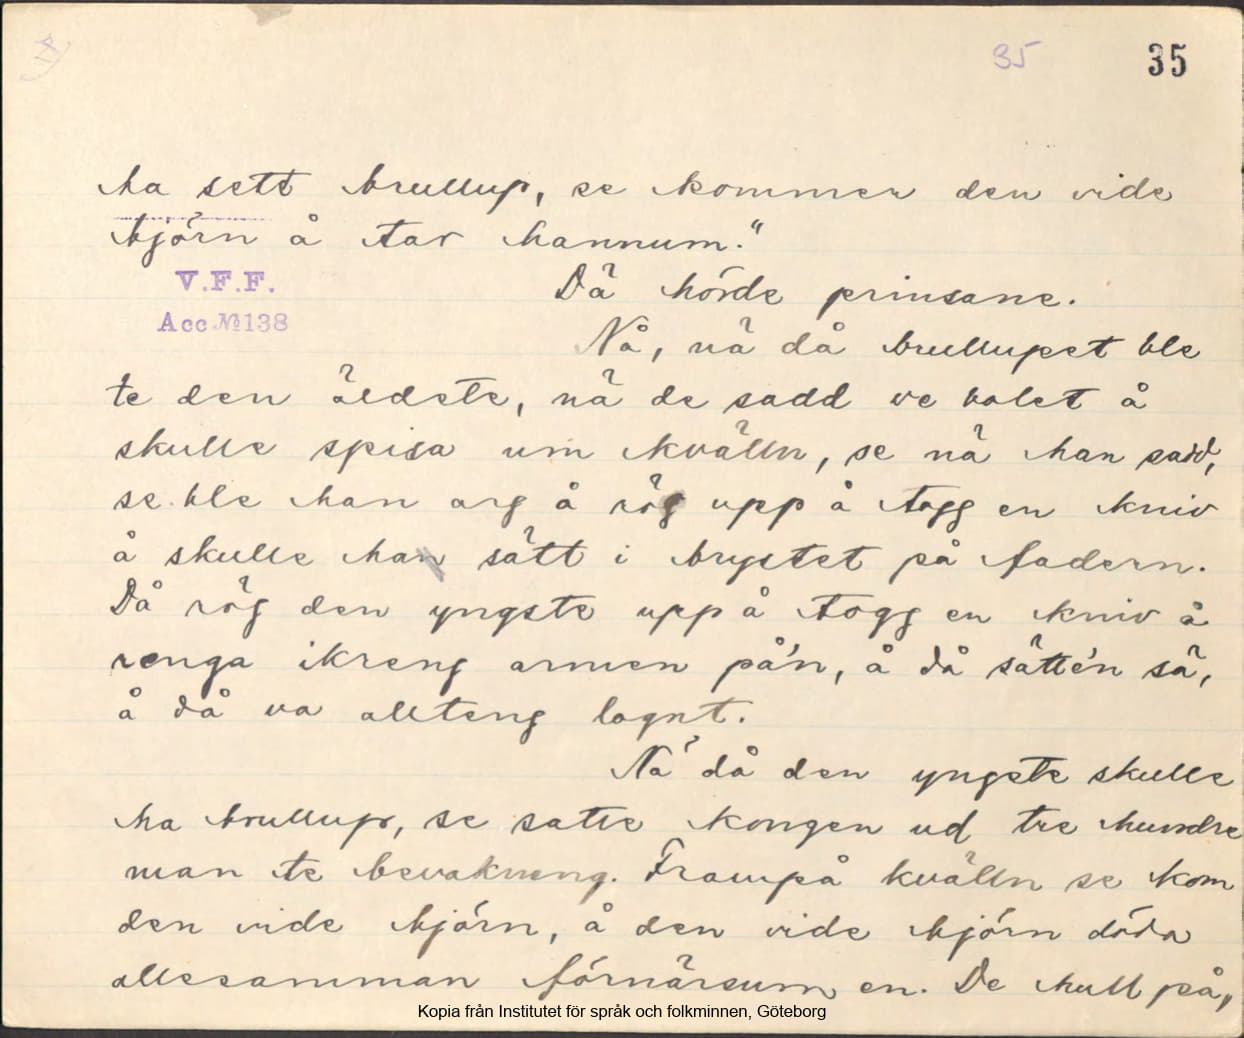 35 35
ha sett brullup, se kommer den vide
björn å tar hannum."
V.F.F.
Acc. № 138
Dä hörde prinsane.
Nå, nä då brullupet ble
te den äldste, nä de sadd ve bolet å
skulle spisa um kvälln, se nä han sadd,
se ble han arg å rög upp å togg en kniv
å skulle han sätt i brystet på fadern.
Då rög den yngste upp å togg en kniv å
renga ikreng armen på'n, å då sätte'n sä,
å då va allteng lognt.
Nä då den yngste skulle
ha brullup, se satte kongen ud tre hundre
man te bevakneng. Frampå kvälln se kom
den vide björn, å den vide björn döda
allesamman förnärsum en. De hull på,
Kopia från Institutet för språk och folkminnen, Göteborg